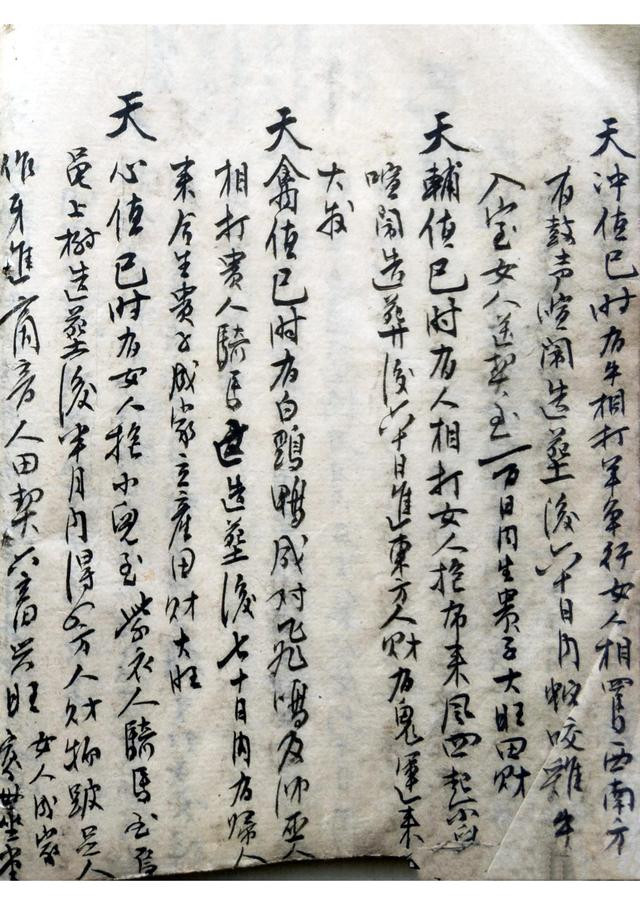 天冲值巳时有牛相打羊争行女人相罵西南方
有鼓声喧闹造葬後六十日内蛇咬雞牛
入宅女人送契至一百日内生贵子大旺田财
天輔值巳时有人相打女人抱布来風四起
喧闹造葬後六十日進東方人财有鬼運来
大发
天禽值巳时有白鵝鴨成对飞 及师巫人
相打贵人騎馬 造葬後七十日内有歸人
来合生贵子成家立產田财大旺
天心值巳时有女人抱小兒至紫衣人騎馬至
上树造葬後半月内得 方人财物跛足人
作牙進商音人田契六畜兴旺女人成家